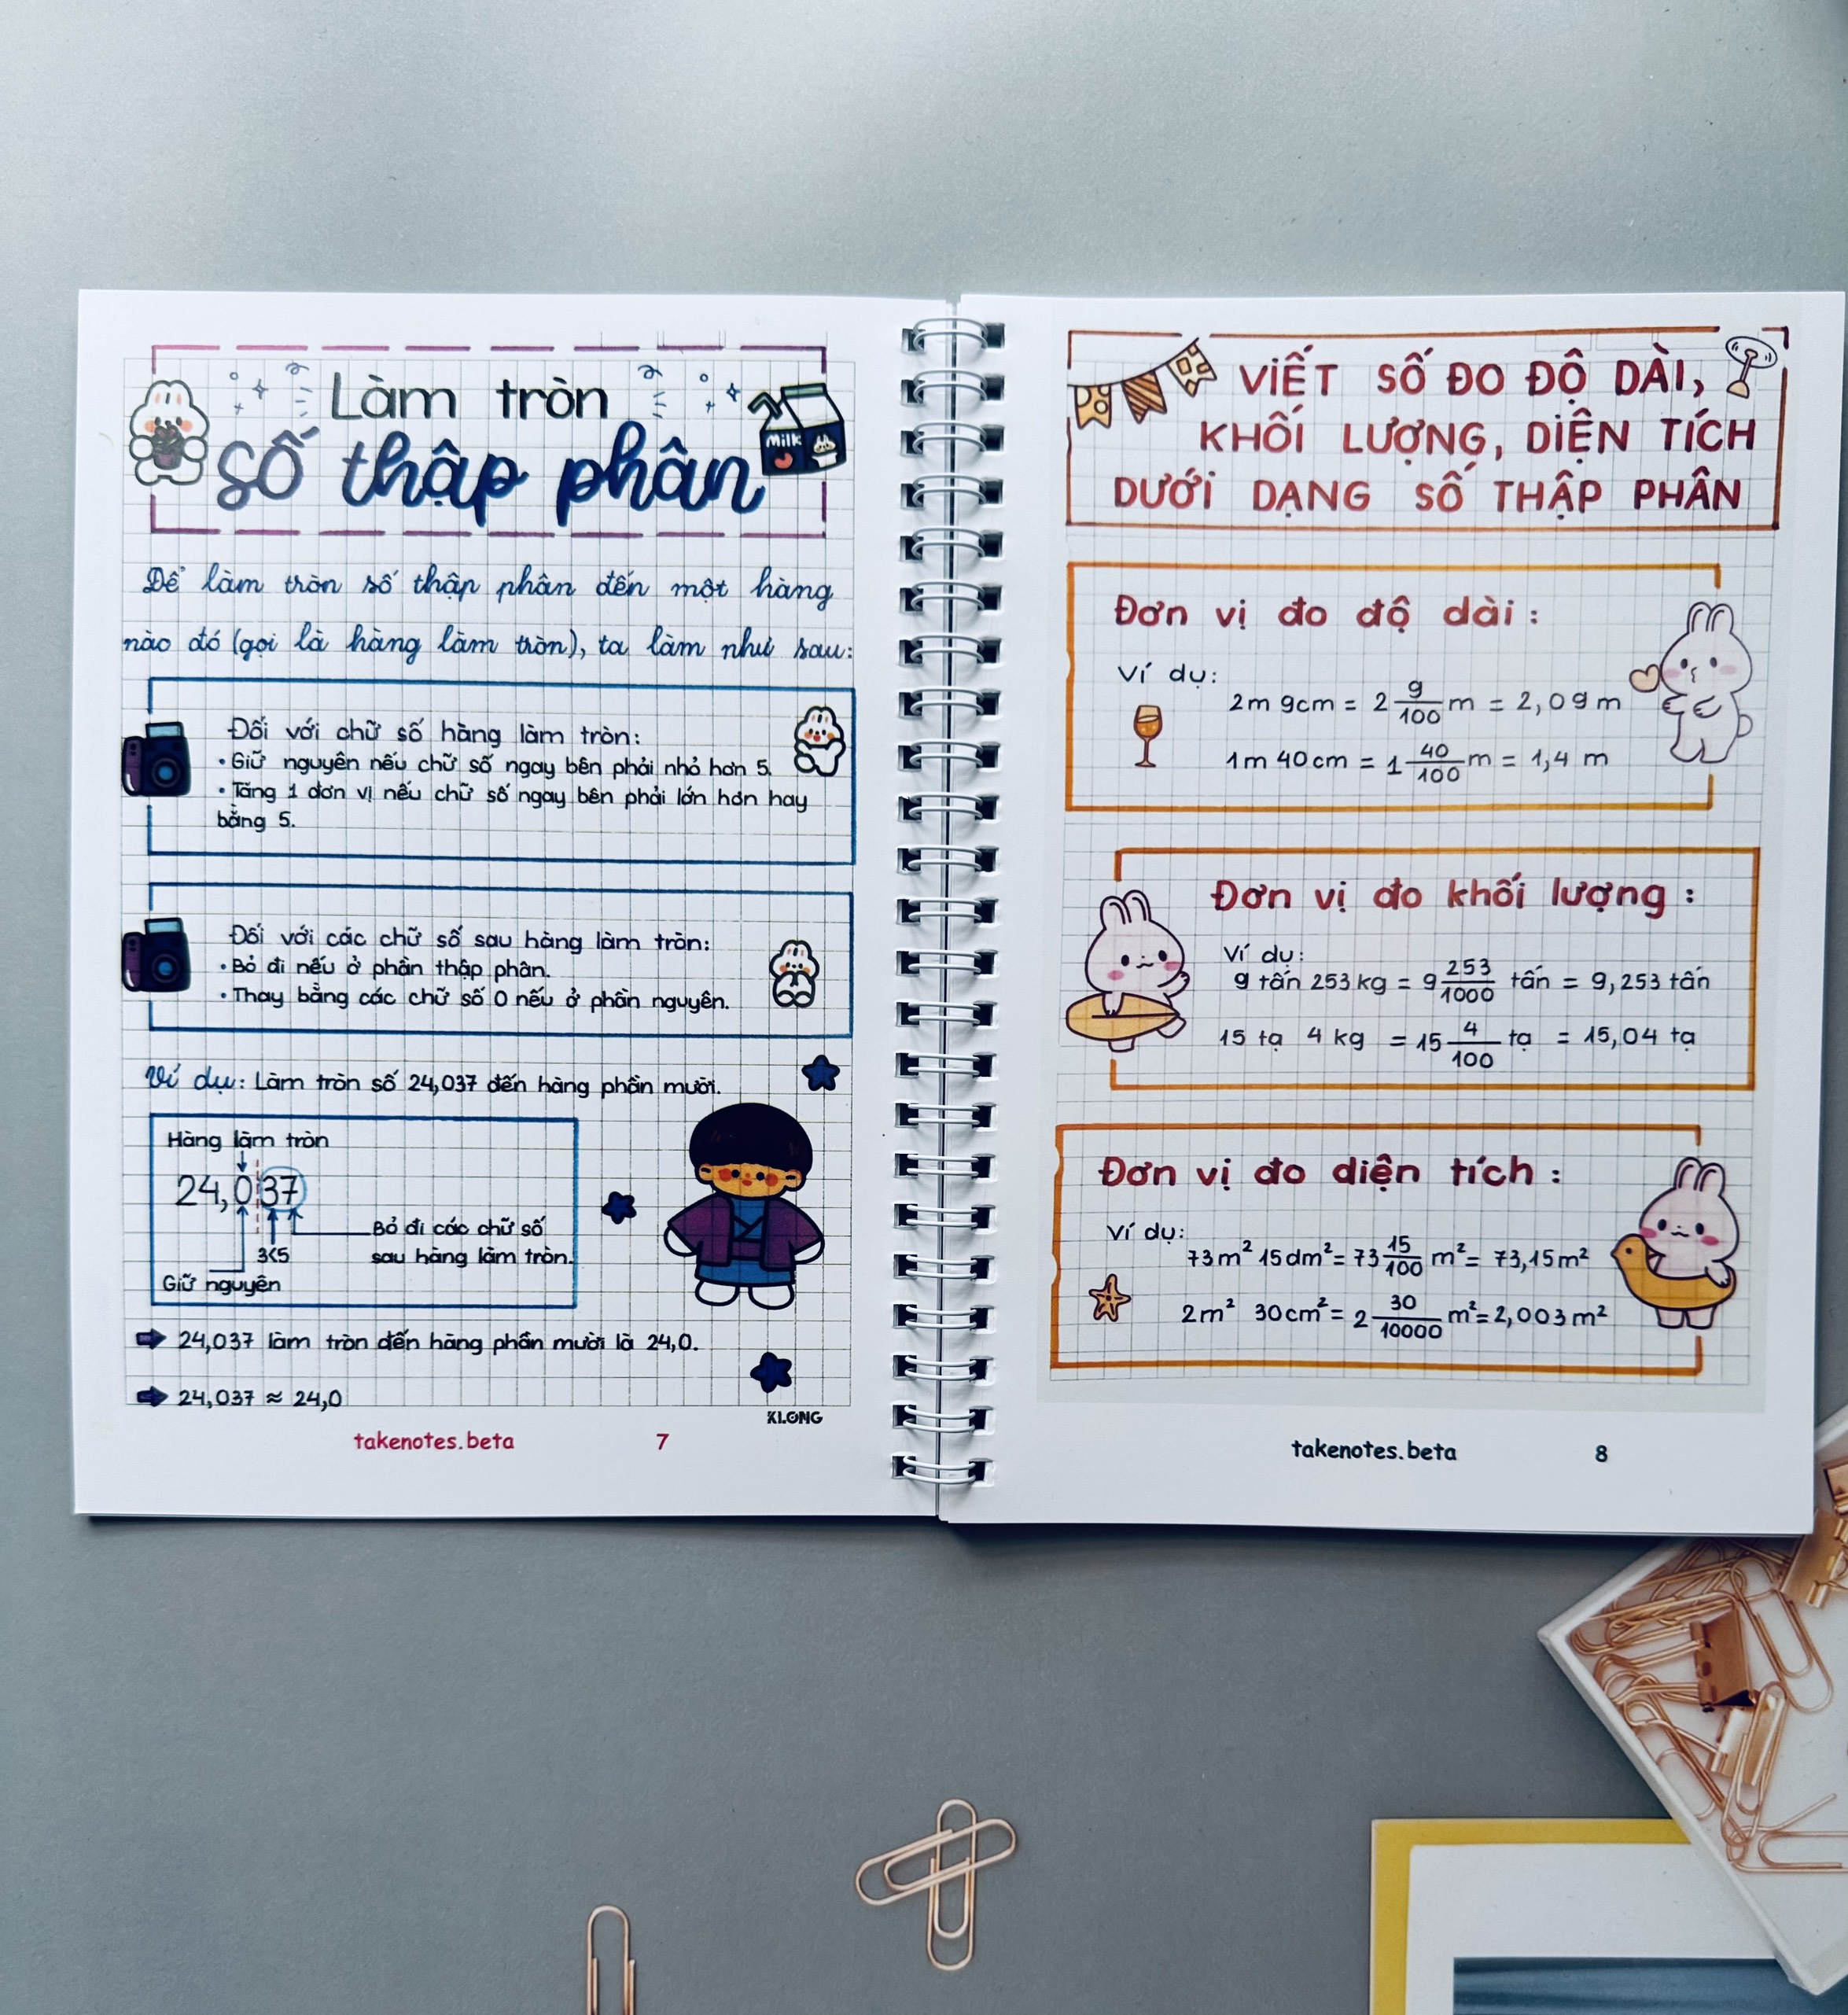 Làm tròn
số thập phân
Milk
Để làm tròn số thập phân đến một hàng
nào đó (gọi là hàng làm tròn), ta làm như sau:
Đối với chữ số hàng làm tròn:
• Giữ nguyên nếu chữ số ngay bên phải nhỏ hơn 5.
• Tăng 1 đơn vị nếu chữ số ngay bên phải lớn hơn hay
bằng 5.
Đối với các chữ số sau hàng làm tròn:
• Bỏ đi nếu ở phần thập phân.
• Thay bằng các chữ số 0 nếu ở phần nguyên.
Ví dụ: Làm tròn số 24,037 đến hàng phần mười.
Hàng làm tròn
24,037
Bỏ đi các chữ số
3<5 sau hàng làm tròn.
Giữ nguyên
➡ 24,037 làm tròn đến hàng phần mười là 24,0.
➡ 24,037 ≈ 24,0
KLONG
takenotes.beta 7
VIẾT SỐ ĐO ĐỘ DÀI,
KHỐI LƯỢNG, DIỆN TÍCH
DƯỚI DẠNG SỐ THẬP PHÂN
Đơn vị đo độ dài:
Ví dụ:
2m 9cm = 2 9/100 m = 2,09 m
1m 40cm = 1 40/100 m = 1,4 m
Đơn vị đo khối lượng:
Ví dụ:
9 tấn 253 kg = 9 253/1000 tấn = 9,253 tấn
15 tạ 4 kg = 15 4/100 tạ = 15,04 tạ
Đơn vị đo diện tích:
Ví dụ:
73m² 15dm² = 73 15/100 m² = 73,15m²
2m² 30cm² = 2 30/10000 m² = 2,003m²
takenotes.beta 8